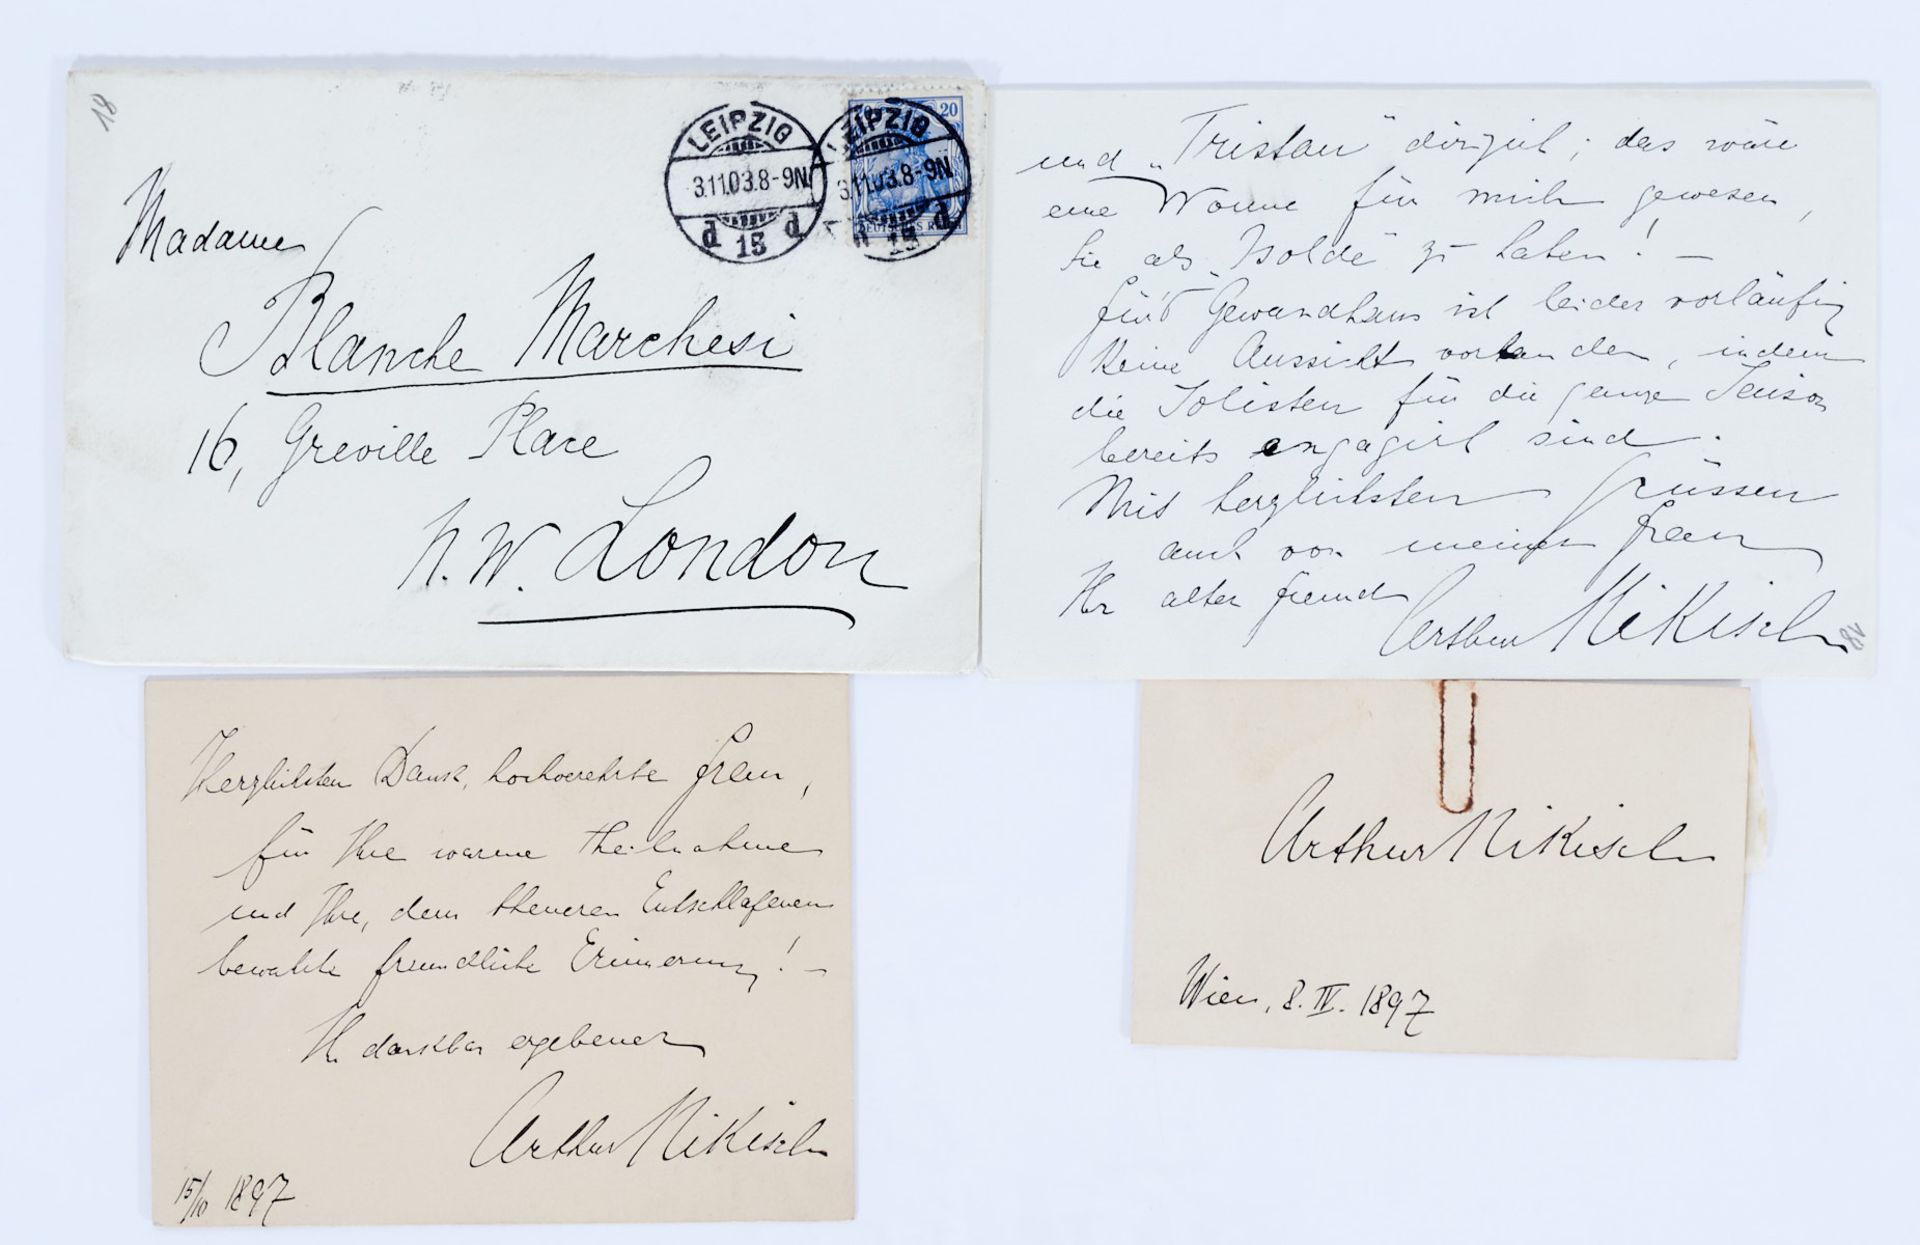 18
LEIPZIG
3.11.03.8-9N.
d 15 d
LEIPZIG
3.11.03.8-9N.
15 d
20
DEUTSCHES REICH
Madame
Blanche Marchesi
16, Greville Place
N.W. London
und „Tristan" dirigirt; das wäre
eine Wonne für mich gewesen,
Sie als „Isolde" zu haben! —
für's Gewandhaus ist leider vorläufig
keine Aussicht vorhanden, indem
die Solisten für die ganze Saison
bereits engagirt sind.
Mit herzlichsten Grüssen
auch von meiner Frau
Ihr alter Freund
Arthur Nikisch
18
Herzlichsten Dank, hochverehrte Frau,
für Ihre warme Theilnahme
und Ihre, dem theueren Entschlafenen
bewahrte freundliche Erinnerung! —
Ihr dankbar ergebener
Arthur Nikisch
15/10 1897
Arthur Nikisch
Wien, 8. IV. 1897